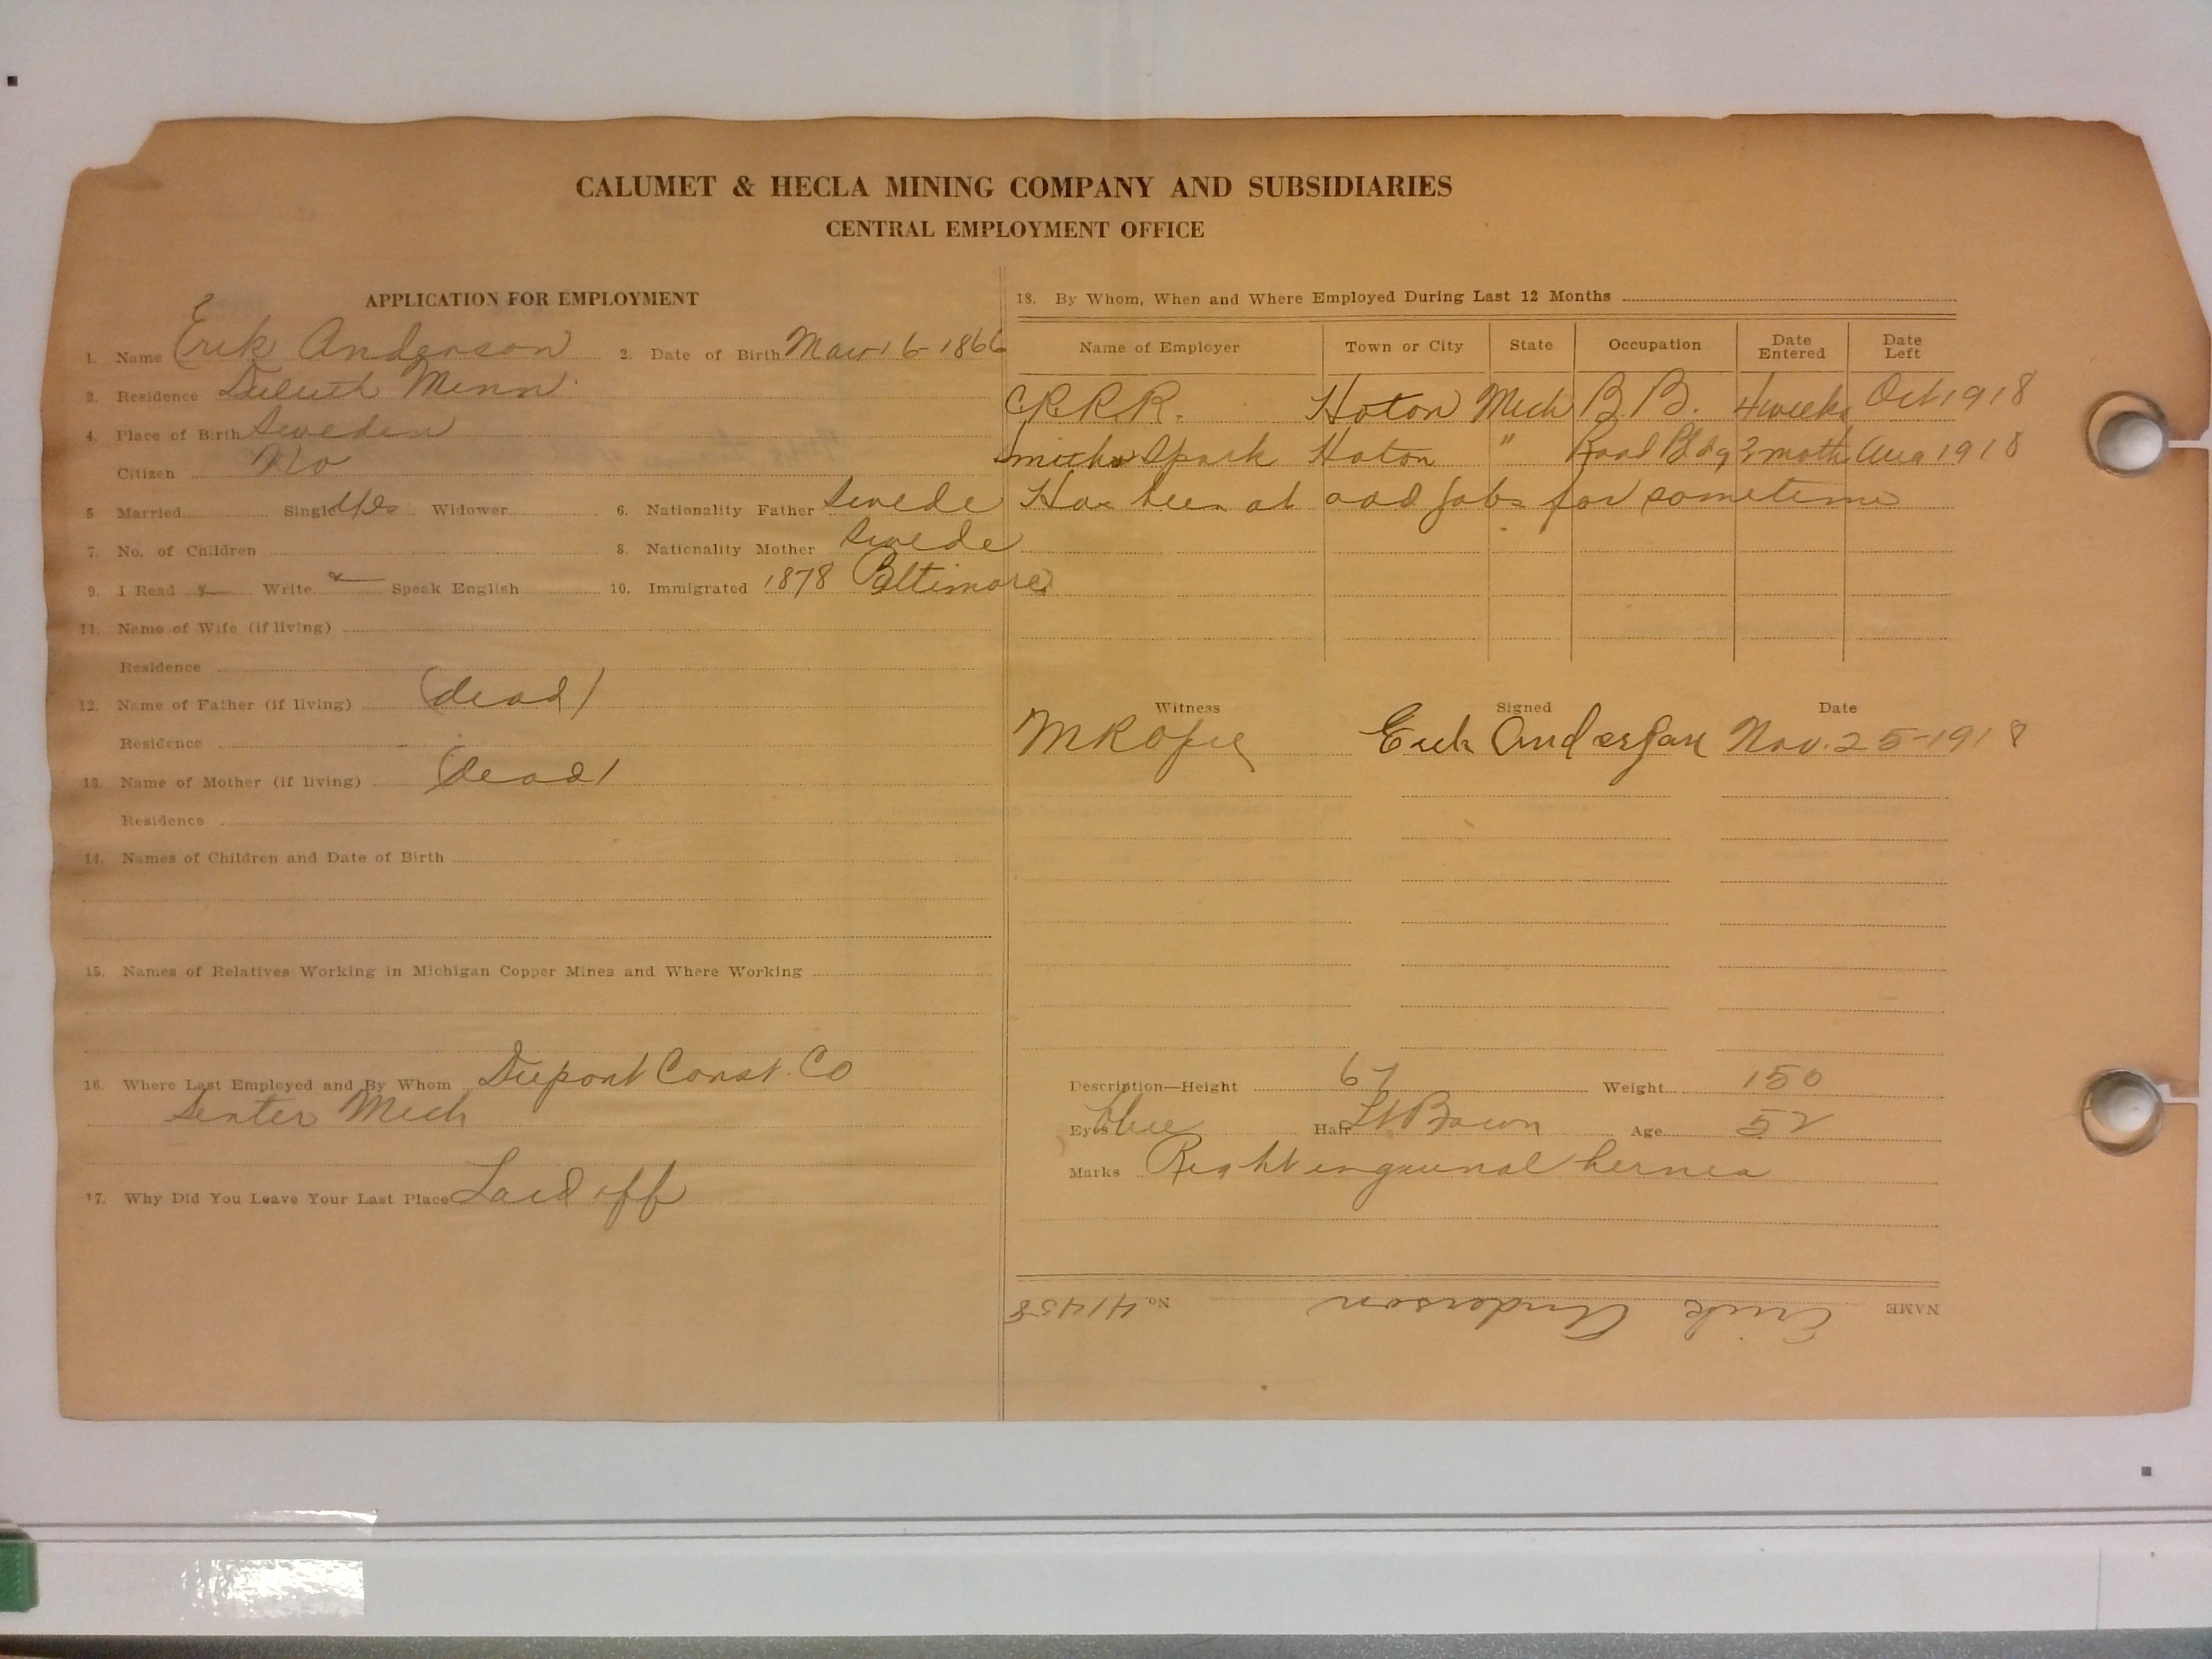 CALUMET & HECLA MINING COMPANY AND SUBSIDIARIES
CENTRAL EMPLOYMENT OFFICE
APPLICATION FOR EMPLOYMENT
1. Name Erik Anderson 2. Date of Birth Mar 16-1866
3. Residence Duluth Minn.
4. Place of Birth Sweden
Citizen No
5. Married Single Yes Widower 6. Nationality Father Swede
7. No. of Children 8. Nationality Mother Swede
9. I Read Write Speak English 10. Immigrated 1878 Baltimore
11. Name of Wife (if living)
Residence
12. Name of Father (if living) (dead)
Residence
13. Name of Mother (if living) (dead)
Residence
14. Names of Children and Date of Birth
15. Names of Relatives Working in Michigan Copper Mines and Where Working
16. Where Last Employed and By Whom Dupont Const. Co
Senter Mich
17. Why Did You Leave Your Last Place Laid off
18. By Whom, When and Where Employed During Last 12 Months
Name of Employer Town or City State Occupation Date Entered Date Left
C.R.R.R. Hoton Mich B.B. 4 weeks Oct 1918
Smith Spark Hoton " Road Bldg 3 moth Aug 1918
Has been at odd jobs for sometime
Witness Signed Date
Erik Anderson Nov. 25-1918
Description—Height 67 Weight 150
Eyes blue Hair Lt Brown Age 52
Marks Right inguinal hernia
NAME Erik Anderson No. 41458